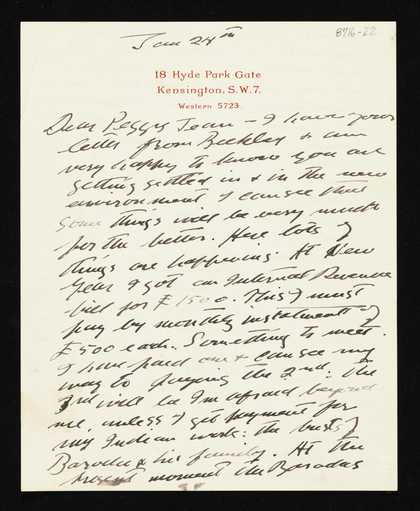 8716-22
Jan 24th
18 Hyde Park Gate
Kensington, S.W.7.
Western 5723.
Dear Peggy Jean – I have your
letter from Beckley & am
very happy to know you are
getting settled in & in the new
environment. I can see that
some things will be very much
for the better. Here lots of
things are happening. At New
Year I got an Internal Revenue
bill for £1500. This I must
pay by monthly instalments of
£500 each. Something to meet.
I have paid one & can see my
way to paying the 2nd. The
3rd will be I'm afraid beyond
me, unless I get payment for
my Indian work: the busts of
Baroda & his family. At the
present moment the Barodas